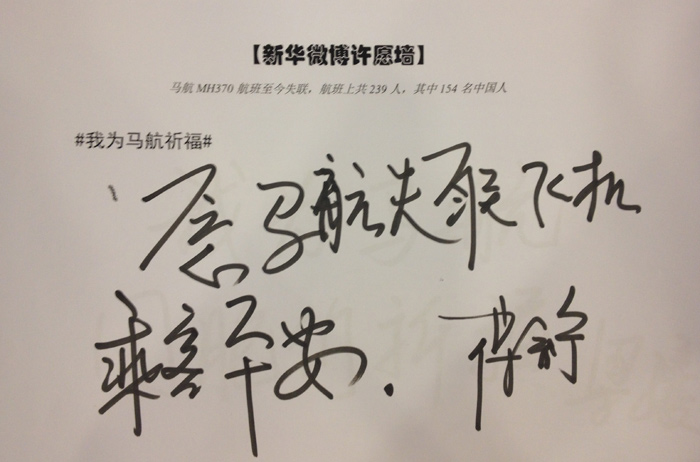 【新华微博许愿墙】
马航 MH370 航班至今失联，航班上共 239 人，其中 154 名中国人
#我为马航祈福#
愿马航失联飞机
乘客平安.